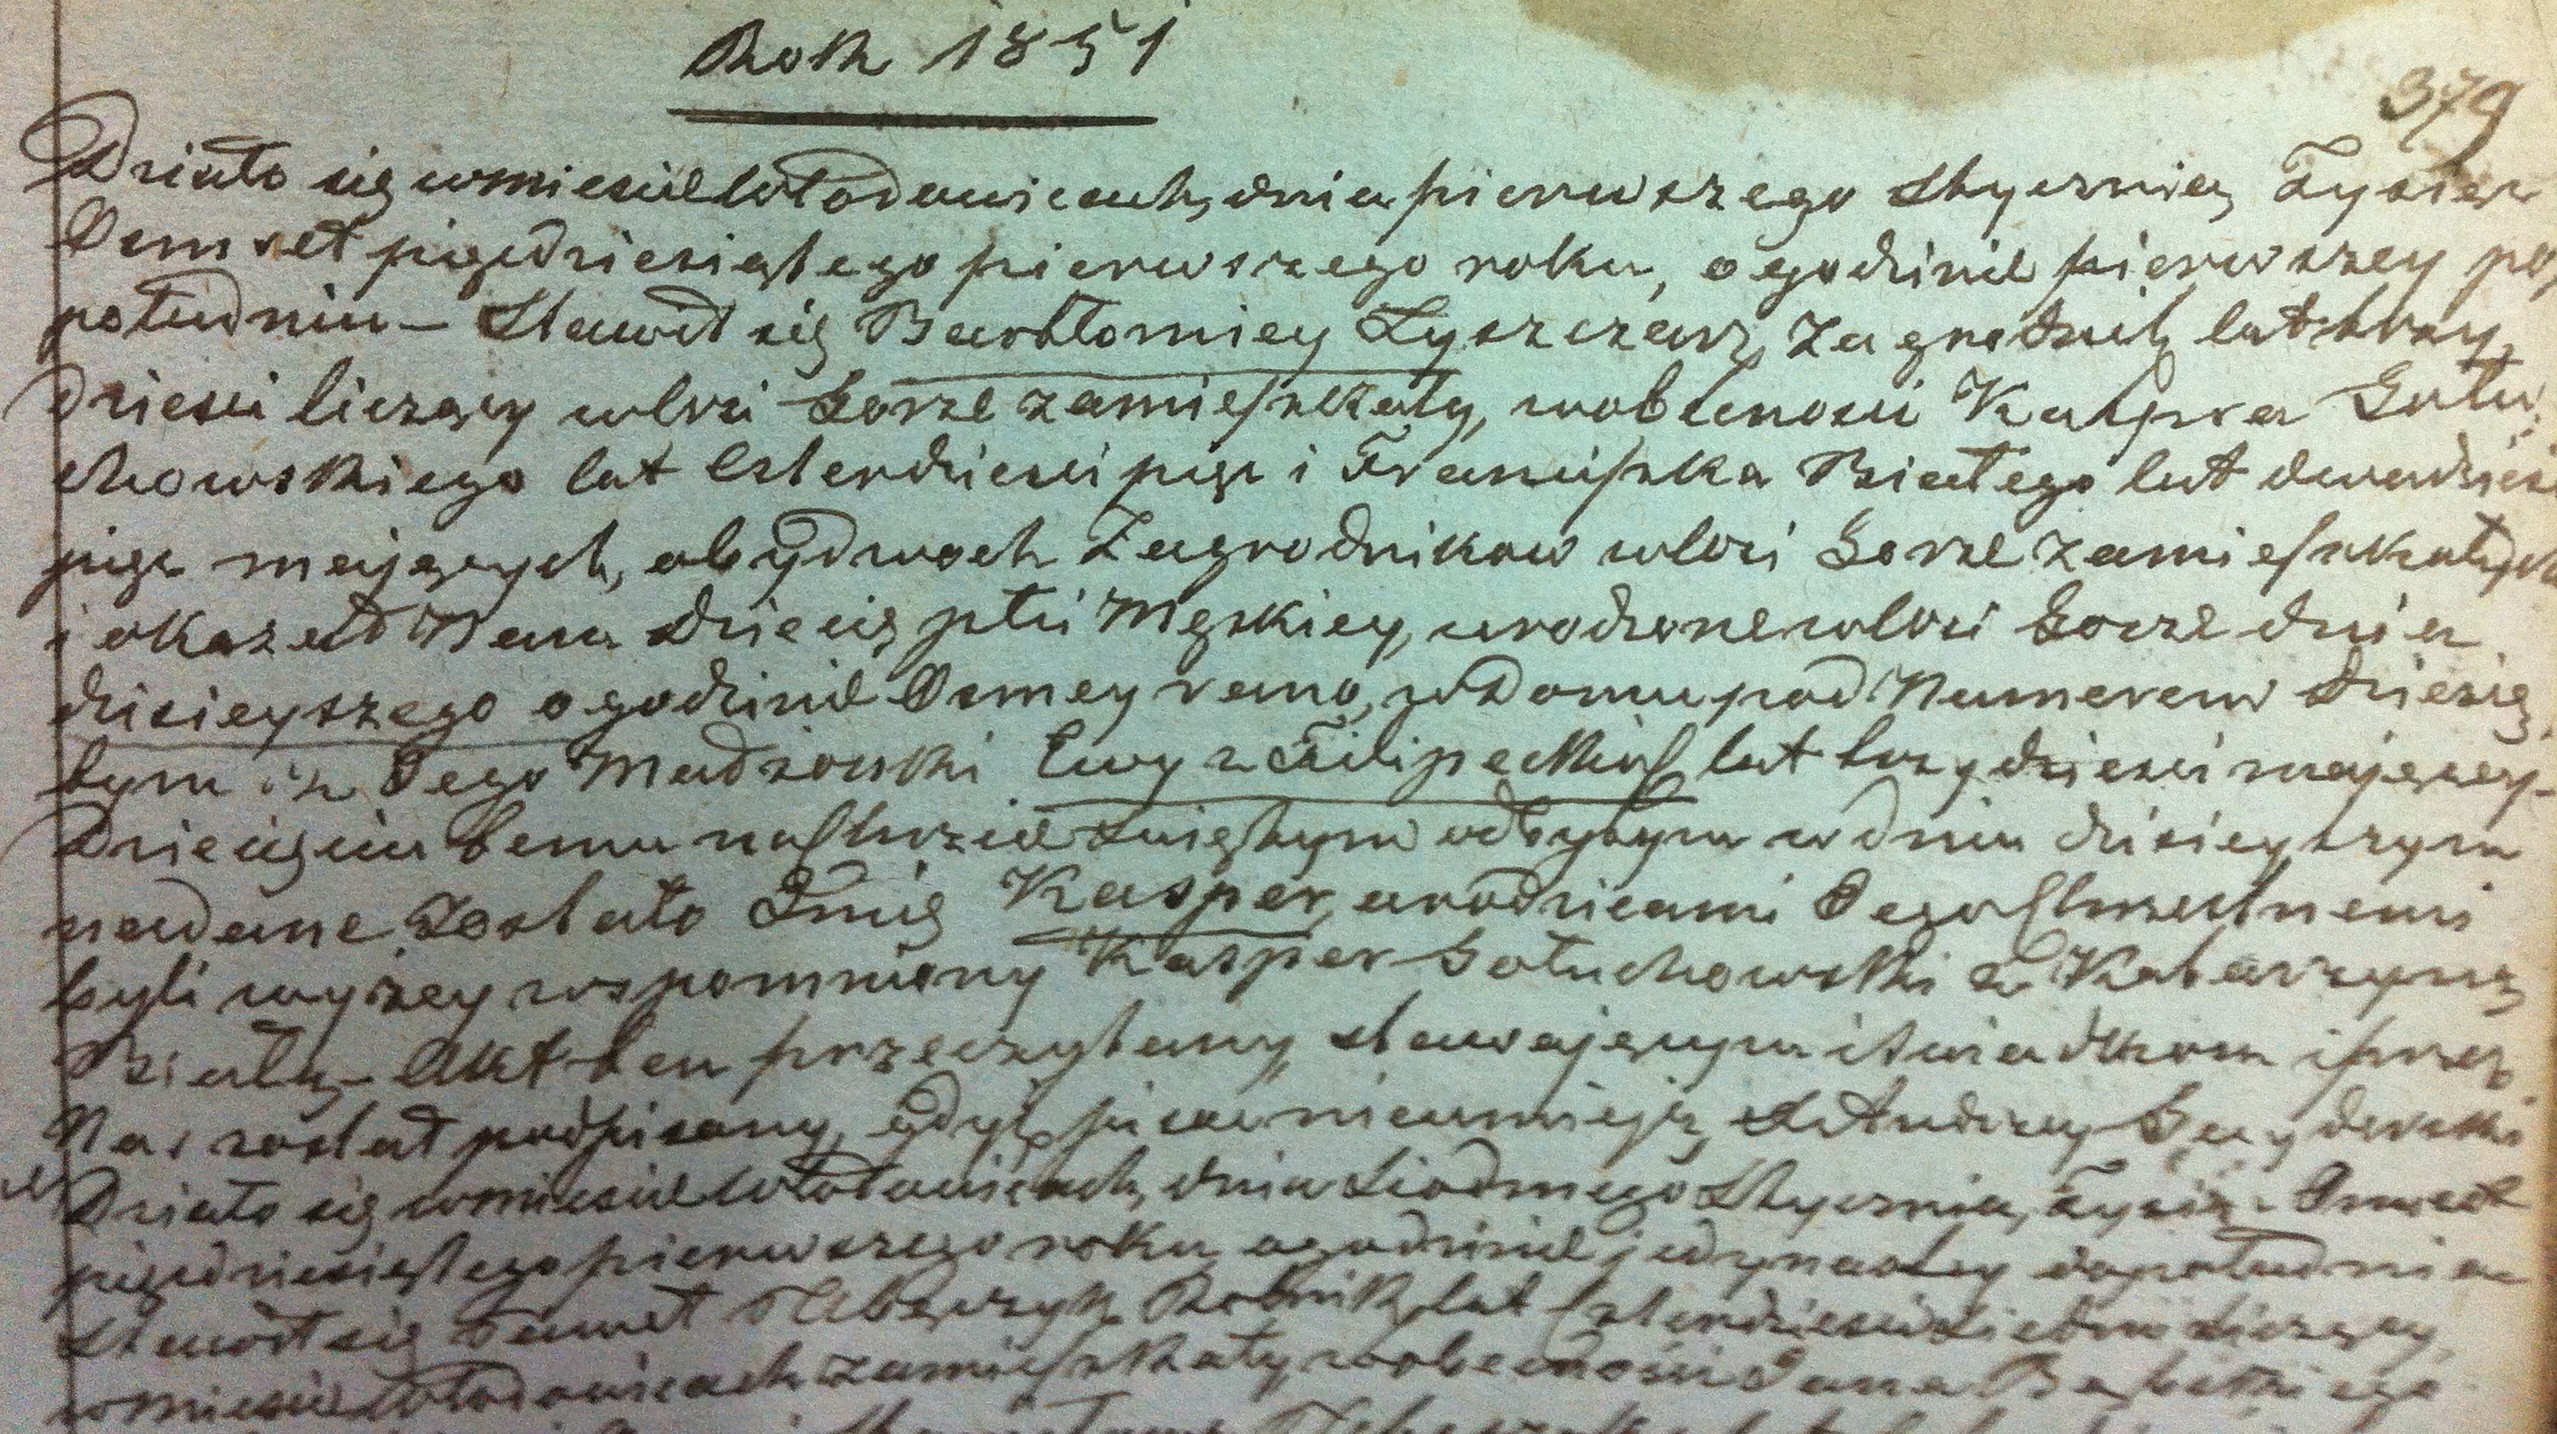 Rok 1851
379
Działo się w mieście Włodowicach, dnia pierwszego Stycznia, Tysiąc
Ośmset pięćdziesiątego pierwszego roku, o godzinie pierwszey po
południu – Stawił się Bartłomiey Łyszczarz, Zagrodnik lat trzy
dzieści liczący w Wsi Gorze zamieszkały, w obecności Kaspra Gołu
chowskiego lat Czterdzieści pięć i Franciszka Białego lat dwadzieścia
pięć maiących, obydwoch Zagrodnikow w Wsi Gorze zamieszkałych
i okazał Nam dziecię płci Męskiey, urodzone w Wsi Gorze dnia
dzisieyszego o godzinie Osmey rano, w Domu pod Numerem dziesią
tym iz Jego Małżonki Ewy z Filipeckich lat trzydzieści maiącey –
Dziecięciu temu na Chrzcie Świętym odbytym w dniu dzisieyszym
nadane Zostało Imię Kasper, a rodzicami Jego Chrzestnemi
byli wyżey wspomniony Kasper Gołuchowski z Katarzyną
Białą – Akt ten przeczytany, stawaiącym i Świadkom i przez
Nas został podpisany, gdyż pisać nieumieią, X Andrzy
Działo się w mieście Włodowicach, dnia Siodmego Stycznia, Tysiąc Ośmset
pięćdziesiątego pierwszego roku o godzinie jedynastey dopołudnia
Stawił się Paweł Robnik, lat Czterdzieści Siedm liczący,
w mieście Włodowicach zamieszkały w obecności Jana